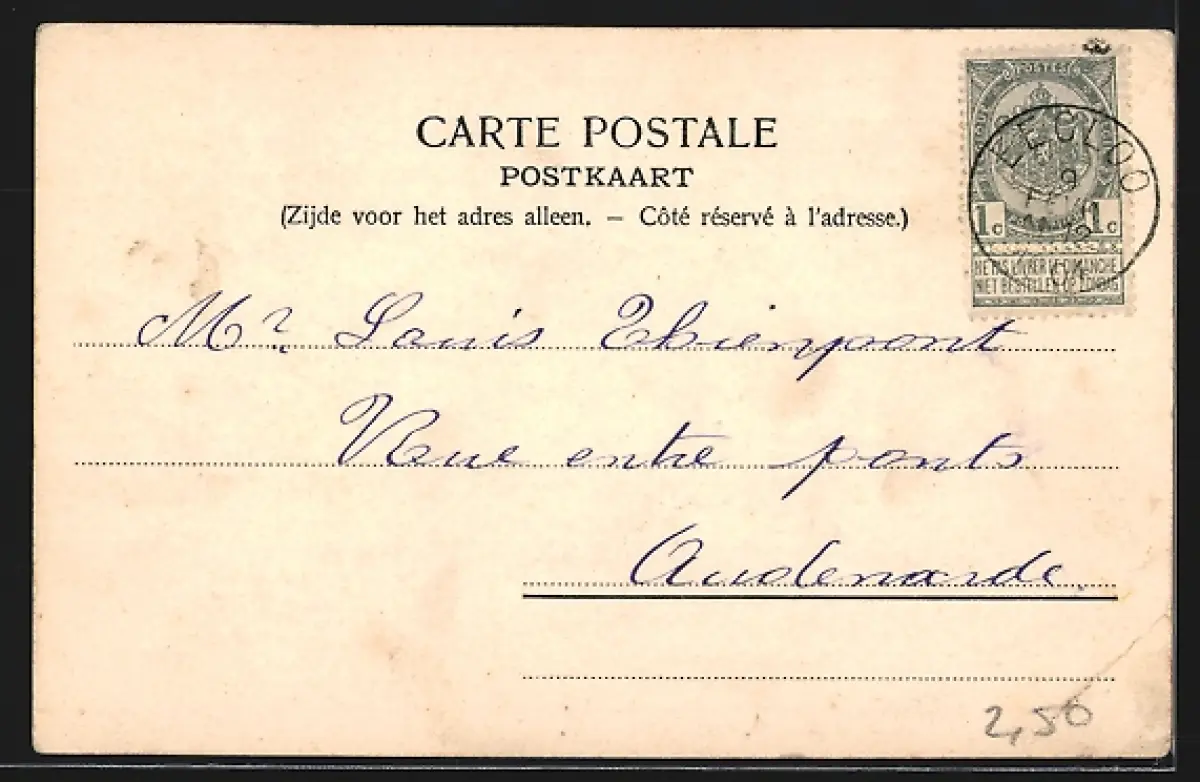 CARTE POSTALE
POSTKAART
(Zijde voor het adres alleen. – Côté réservé à l'adresse.)
POSTES
EECLOO
9
1c 1c
NE PAS LIVRER LE DIMANCHE
NIET BESTELLEN OP ZONDAG
Mr Louis Thienpont
Rue entre ponts
Audenarde.
2,50